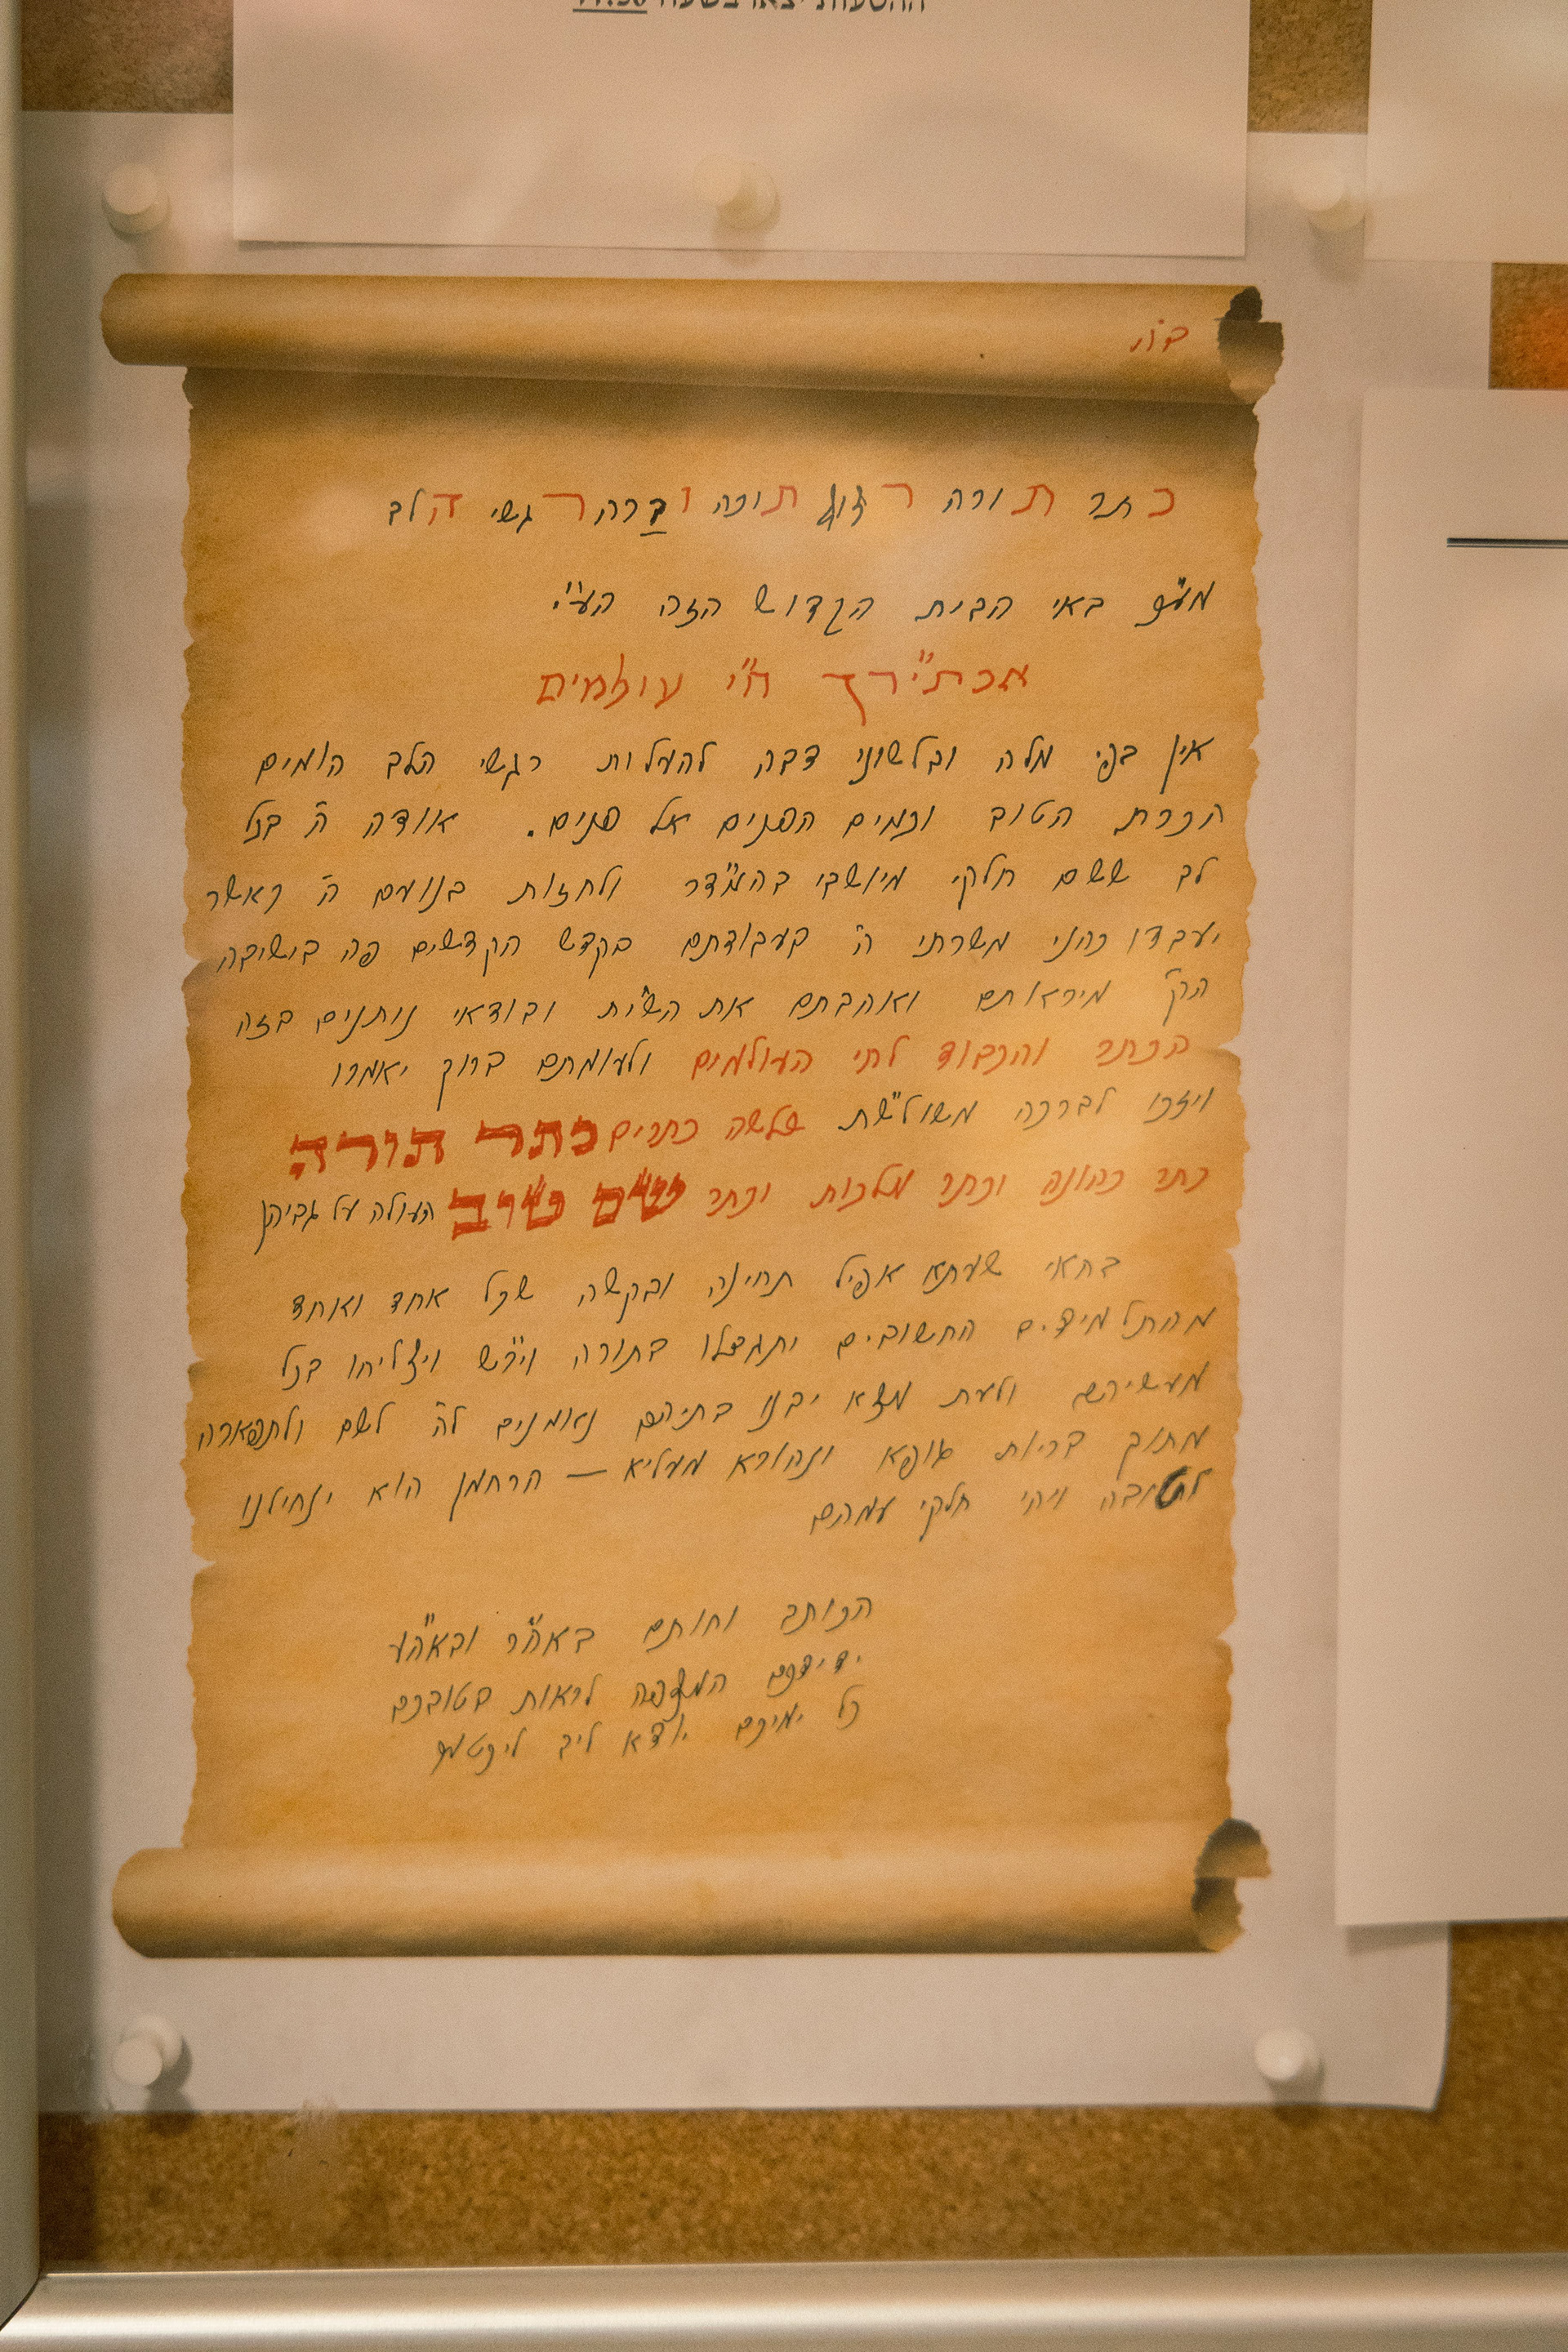 ההסעות יצאו בשעה 11:30
ב"ה
כתר תורה רצוג תוכה וברהר גשי הלב
באי הבית הקדוש הזה העי"
אכתי"רך ח"י עולמים
אין בפי מלה ובלשוני דבה להעלות רגשי הלב הומים
הכרת הטוב וכמים הפנים אל פנים. אודה ה' בכל
לב ששם חלקי מיושבי בהמ"דר ולחזות בנועם ה' כאשר
יעבדו כהני משרתי ה' בעבודתם בקדש הקדשים פה בישיבה
הק' מיראותם ואהבתם את השי"ת ובודאי נותנים בזה
הכתר והכבוד לחי העולמים ולעומתם ברוך יאמרו
ויזכו לברכה משול"שת שלשה כתרים כתר תורה
כתר כהונה וכתר מלכות וכתר ש"ם ט"וב העולה על גביהן
בהאי שעתא אפיל תחינה ובקשה שכל אחד ואחד
מהתלמידים החשובים יתגדלו בתורה וי"רש ויצליחו בכל
מעשיהם ולעת מצא יבנו בתיהם נאמנים לה' לשם ולתפארה
מתוך בריות גופא ונהורא מעליא – הרחמן הוא ינחילנו
לטובה ויהי חלקי עמהם
הכותב וחותם באה"ר ובאה"ע
ידידכם המצפה לראות בטובכם
כל ימיכם יודא ליב